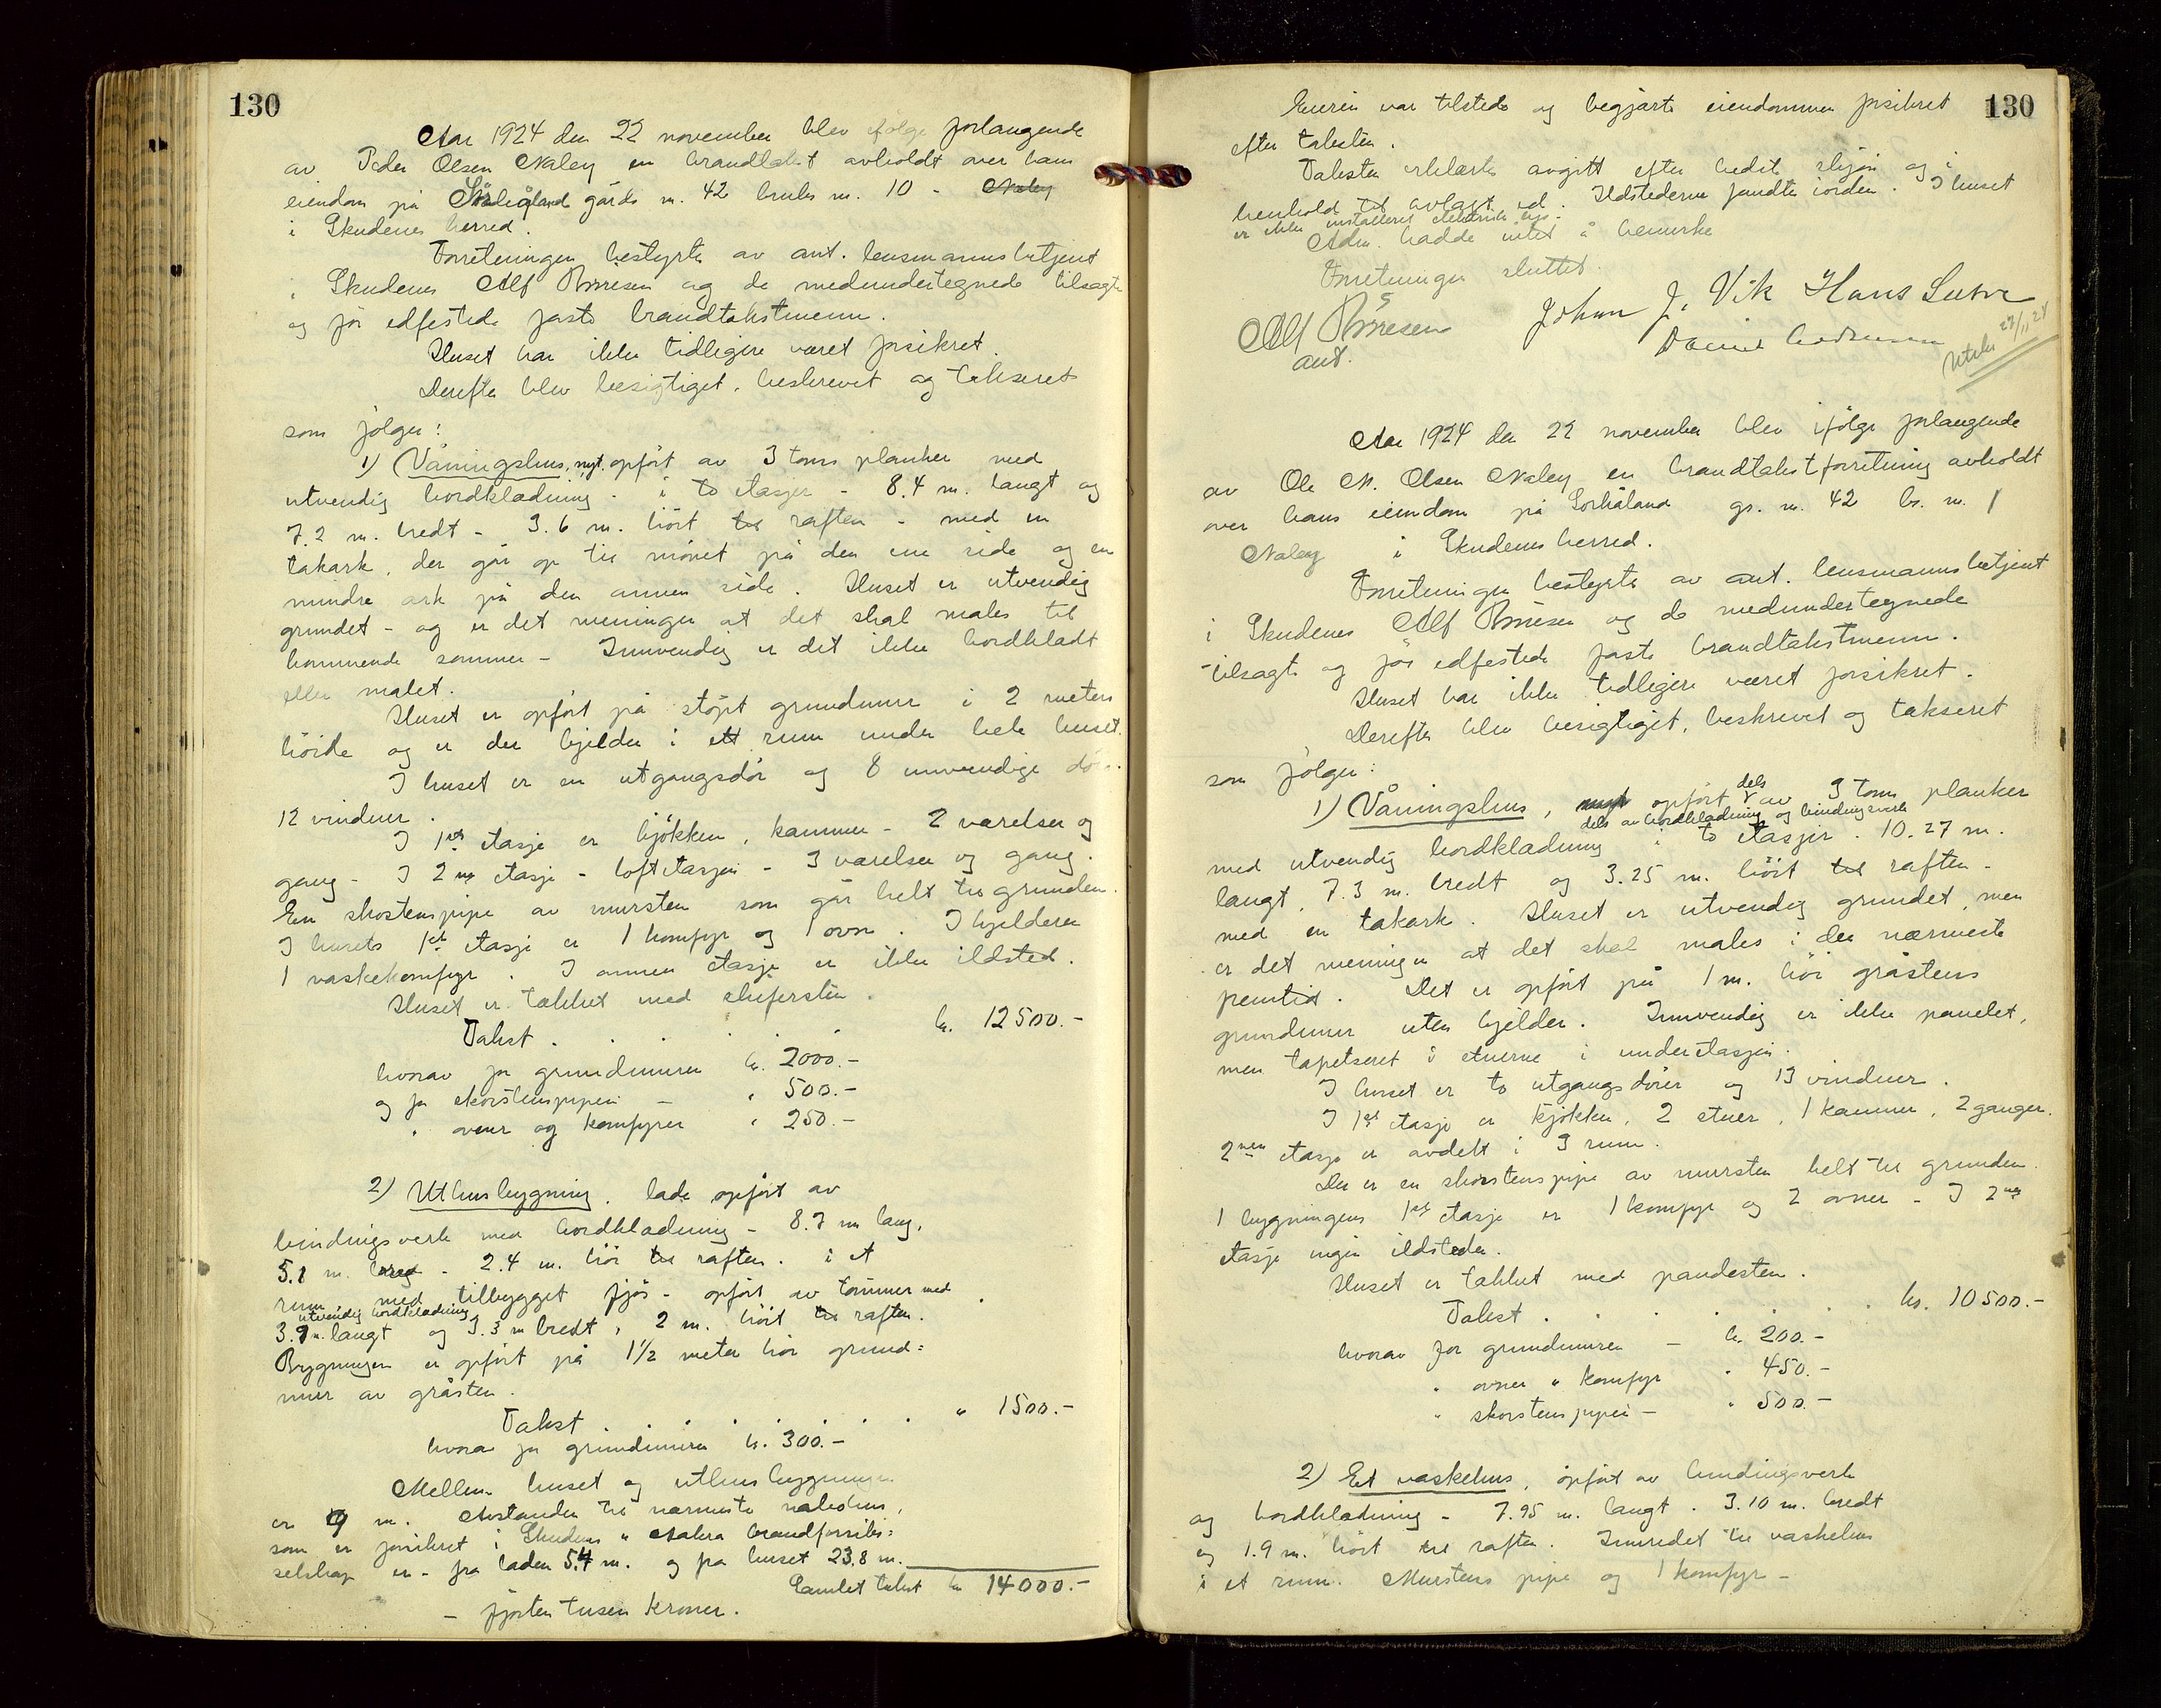 130
Aar 1924 den 22 november blev ifölge forlangende
av Peder Olsen Naley en brandtakst avholdt over hans
eiendom på Sörhåland gårds nr. 42 bruks nr. 10 -
i Skudenes herred.
Forretningen bestyrtes av ant. lensmannsbetjent
i Skudenes Alf Thoresen og de medundertegnede tilsagte
og för edfestede faste brandtakstmenn.
Huset har ikke tidligere været forsikret.
Derefter blev besigtiget, beskrevet og takseret
som følger:
1) Våningshus, nyt, opfört av 3 toms planker med
utvendig bordklædning - i to etasjer - 8.4 m. langt og
7.2 m. bredt - 3.6 m. höit til raften - med en
takark, der går op til mönet på den ene side og en
mindre ark på den annen side. Huset er utvendig
grundet - og er det meningen at det skal males til
kommende sommer - Innvendig er det ikke bordklædt
eller malet.
Huset er opfört på stöpt grundmur i 2 meters
höide og er der kjelder i ett rum under hele huset.
I huset er en utgangsdör og 8 innvendige
12 vinduer.
I 1ste etasje er kjökken, kammer - 2 værelser og
gang - I 2en etasje - loftetasjen - 3 værelser og gang.
En skorstenspipe av mursten som går helt til grunden.
I husets 1ste etasje er 1 komfyr og 1 ovn. I kjelderen
1 vaskekomfyr. I annen etasje er ikke ildsted.
Huset er tækket med skifersten.
Takst . . . . kr. 12500.-
hvorav for grundmuren kr. 2000.-
og for skorstenspipen - " 500.-
" ovner og komfyrer " 250.-
2) Uthusbygning, lade opfört av
bindingsverk med bordklædning - 8.7 m lang,
5.1 m. bred - 2.4 m. höi til raften. i et
rum med tilbygget fjös - opfört av tömmer med
utvendig bordklædning
3.9 m. langt og 3.3 m bredt, 2 m. höit til raften.
Bygningen er opfört på 1½ meter höi grund=
mur av gråsten.
Takst . . . . . . " 1500.-
hvorav for grundmuren kr. 300.-
Mellem huset og uthusbygningen
er 9 m. Avstanden til nærmeste nabohus,
som er forsikret i Skudenes " Aakra brandforsikr=
selskap er - fra laden 54 m. og fra huset 23.8 m.
Samlet takst kr 14000.-
- fjorten tusen kroner.
130
Eieren var tilstede og begjærte eiendommen forsikret
efter taksten.
Taksten erklæres avgitt efter bedste skjön og i
henhold til avlagt ed. Ildstederne fandtes iorden. I huset
er ikke installeret elektrisk lys.
Adm. hadde intet å bemerke
Forretningen sluttet.
Alf Thoresen
ant.
Johan J. Vik Hans
Aar 1924 den 22 november blev ifölge forlangende
av Ole M. Olsen Naley en brandtakstforretning avholdt
over hans eiendom på Sörhåland gs. nr. 42 bs. nr. 1
Naley i Skudenes herred.
Forretningen bestyrtes av ant. lensmannsbetjent
i Skudenes Alf Thoresen og de medundertegnede
tilsagte og för edfestede faste brandtakstmenn.
Huset har ikke tidligere været forsikret.
Derefter blev besigtiget, beskrevet og takseret
som fölger:
1) Våningshus, opfört dels av 3 toms planker
dels av bordklædning og bindingsverk
med utvendig bordklædning i to etasjer. 10.27 m.
langt, 7.3 m. bredt og 3.25 m. höit til raften -
med en takark. Huset er utvendig grundet, men
er det meningen at det skal males i den nærmeste
fremtid. Det er opfört på 1 m. höi gråstens
grundmur uten kjelder. Innvendig er ikke panelet,
men tapetseret i stuerne i underetasjen.
I huset er to utgangsdörer og 13 vinduer.
I 1ste etasje er kjökken, 2 stuer, 1 kammer, 2 ganger.
2nen etasje er avdelt i 3 rum.
Der er en skorstenspipe av mursten helt til grunden.
I bygningens 1ste etasje er 1 komfyr og 2 ovner - I 2nen
etasje ingen ildsteder.
Huset er tækket med pandesten.
Takst . . . . . . kr. 10500.-
hvorav for grundmuren - kr. 200.-
" ovner " komfyr " 450.-
" skorstenspipen - " 500.-
2) Et vaskehus, opfört av bindingsverk
og bordklædning - 7.95 m. langt. 3.10 m. bredt
og 1.9 m. höit til raften. Innredet til vaskehus
i et rum. Murstens pipe og 1 komfyr -